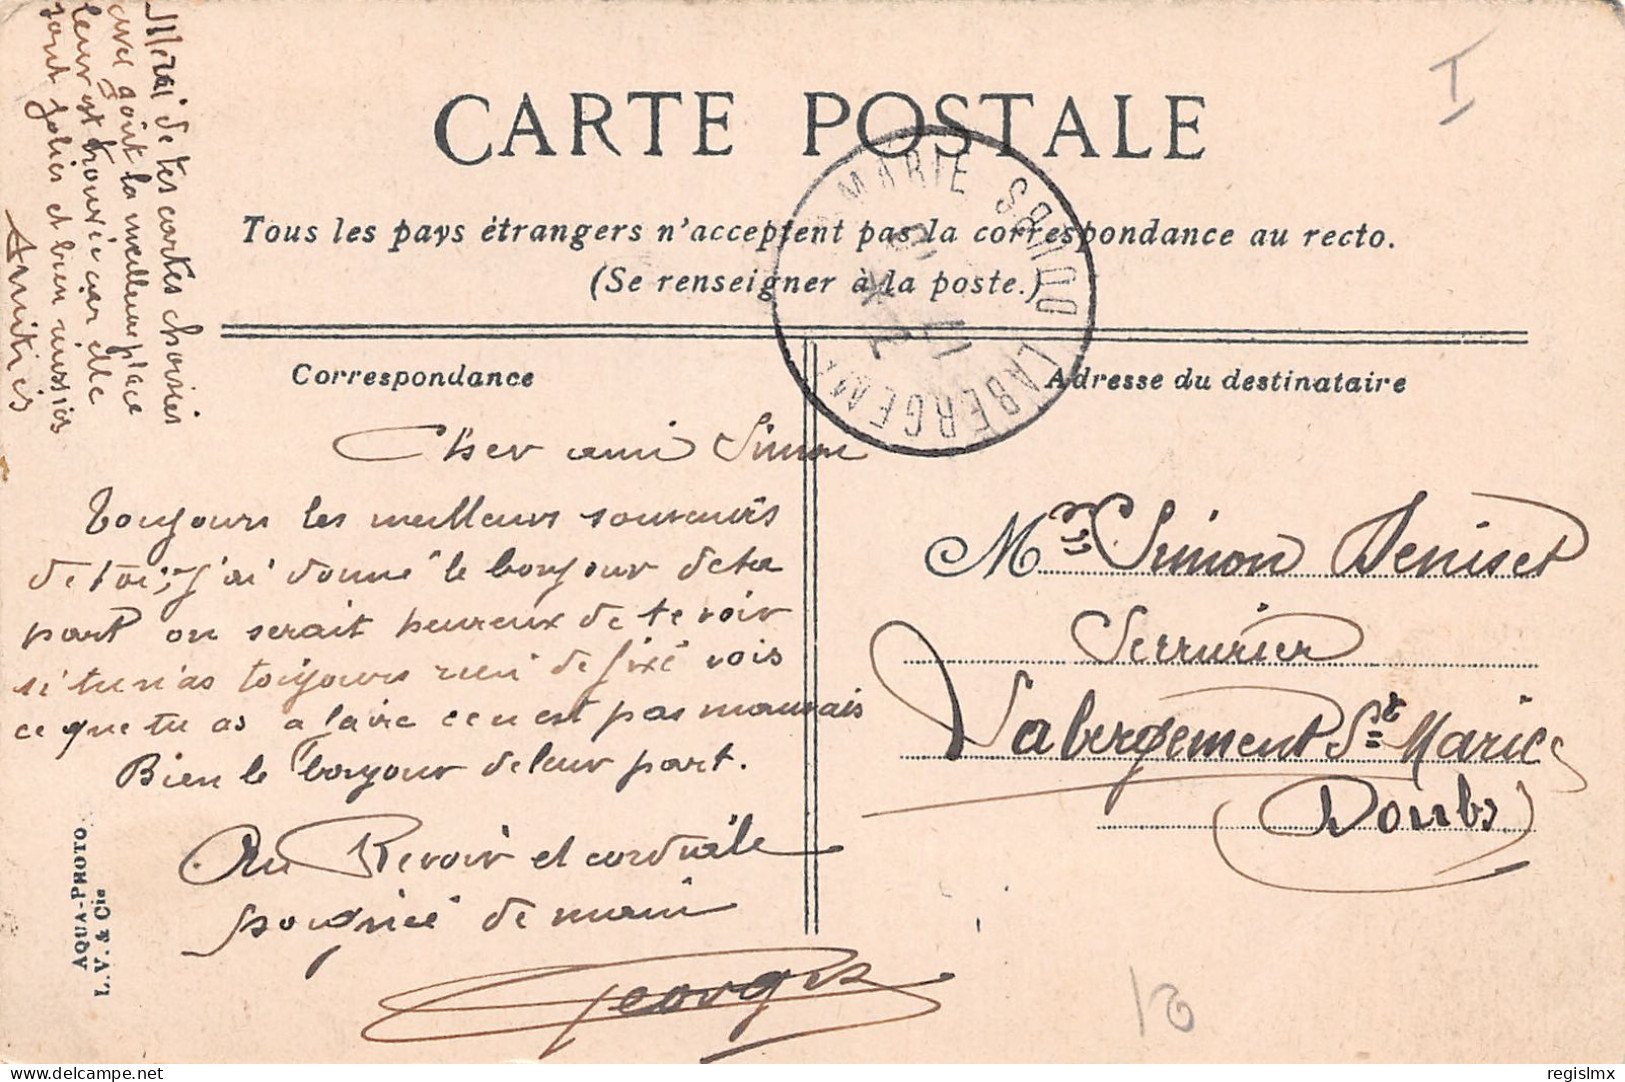 Merci de tes cartes choisies
avec goût la meilleur place
leur est trouvée car elle
sont jolies et bien
Amitiés
I
CARTE POSTALE
Tous les pays étrangers n'acceptent pas la correspondance au recto.
(Se renseigner à la poste.)
LABERGEMENT MARIE DOUBS
Correspondance
Cher ami Simon
Toujours les meilleurs souvenirs
de toi, j'ai donné le bonjour de ta
part on serait heureux de te voir
si tu n'as toujours rien de fixé vois
ce que tu as a faire ce n est pas mauvais
Bien le bonjour de leur part.
Au Revoir et cordiale
poignée de main
Georges
AQUA-PHOTO
L. V. & Cie
Adresse du destinataire
Mr Simon Deniset
Serrurier
Labergement Ste Marie
(Doubs)
delcampe.net
regislmx